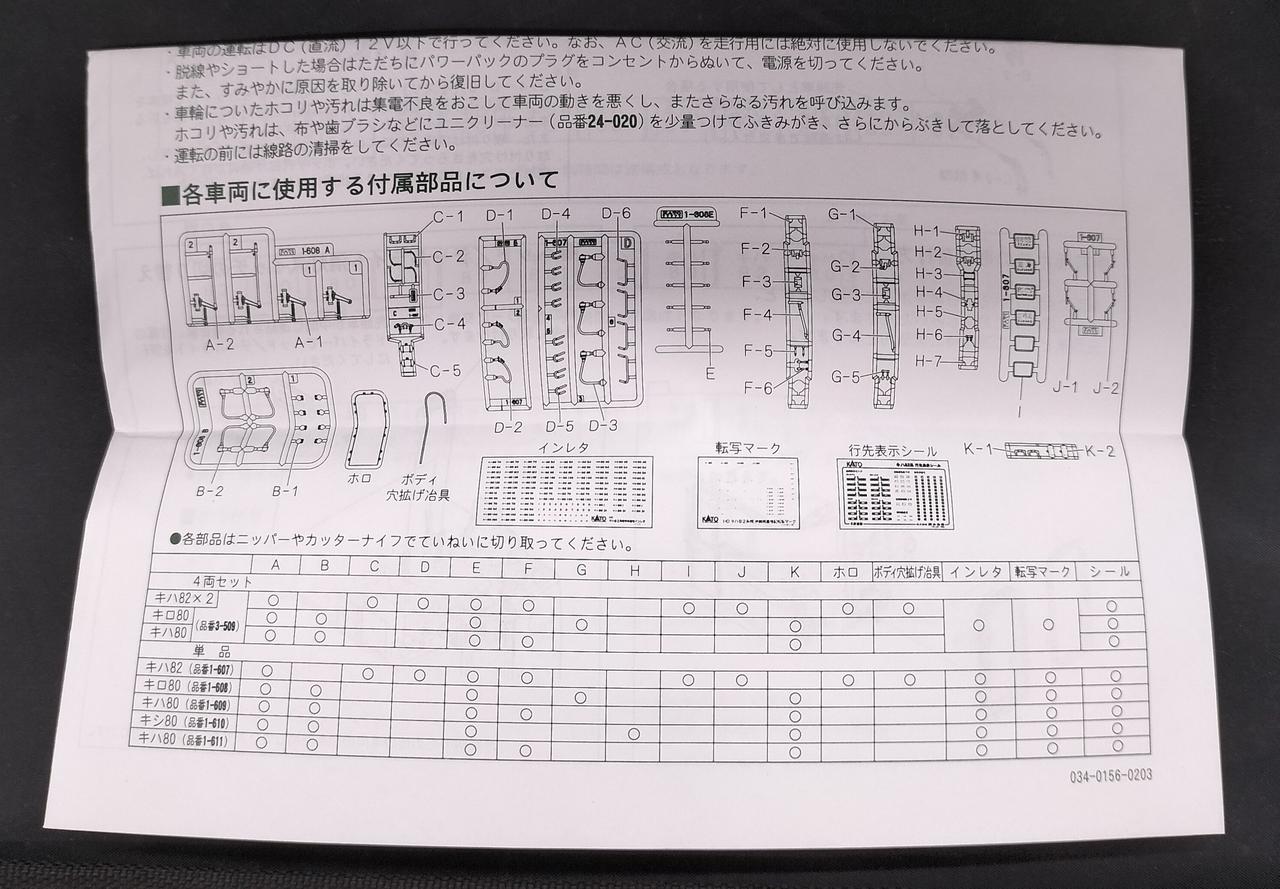 ・車両の運転はＤＣ(直流)１２Ｖ以下で行ってください。なお、ＡＣ(交流)を走行用には絶対に使用しないでください。
・脱線やショートした場合はただちにパワーパックのプラグをコンセントからぬいて、電源を切ってください。
また、すみやかに原因を取り除いてから復旧してください。
・車輪についたホコリや汚れは集電不良をおこして車両の動きを悪くし、またさらなる汚れを呼び込みます。
ホコリや汚れは、布や歯ブラシなどにユニクリーナー(品番24-020)を少量つけてふきみがき、さらにからぶきして落としてください。
・運転の前には線路の清掃をしてください。
■各車両に使用する付属部品について
2 2 KATO 1-608 A 1 1
A-2 A-1
C-1
C-2
C-3
C-4
C-5
D-1 D-4 D-6
1-607 D
1-607
D-2 D-5 D-3
KATO 1-608E
E
F-1
F-2
F-3
F-4
F-5
F-6
G-1
G-2
G-3
G-4
G-5
H-1
H-2
H-3
H-4
H-5
H-6
H-7
KATO 1-607
I
1-607
J-1 J-2
1-608 B 2 1
B-2 B-1
ホロ
ボディ
穴拡げ治具
インレタ
KATO
転写マーク
KATO
行先表示シール
KATO キハ82系 行先表示シール
K-1 K-2
●各部品はニッパーやカッターナイフでていねいに切り取ってください。
A B C D E F G H I J K ホロ ボディ穴拡げ治具 インレタ 転写マーク シール
４両セット
キハ82×2 ○ ○ ○ ○ ○ ○ ○ ○ ○ ○
キロ80 (品番3-509) ○ ○ ○ ○ ○ ○ ○ ○
キハ80 ○ ○ ○ ○ ○ ○
単品
キハ82 (品番1-607) ○ ○ ○ ○ ○ ○ ○ ○ ○ ○ ○ ○
キロ80 (品番1-608) ○ ○ ○ ○ ○ ○ ○ ○
キハ80 (品番1-609) ○ ○ ○ ○ ○ ○ ○ ○
キシ80 (品番1-610) ○ ○ ○ ○ ○ ○ ○ ○
キハ80 (品番1-611) ○ ○ ○ ○ ○ ○ ○ ○
034-0156-0203